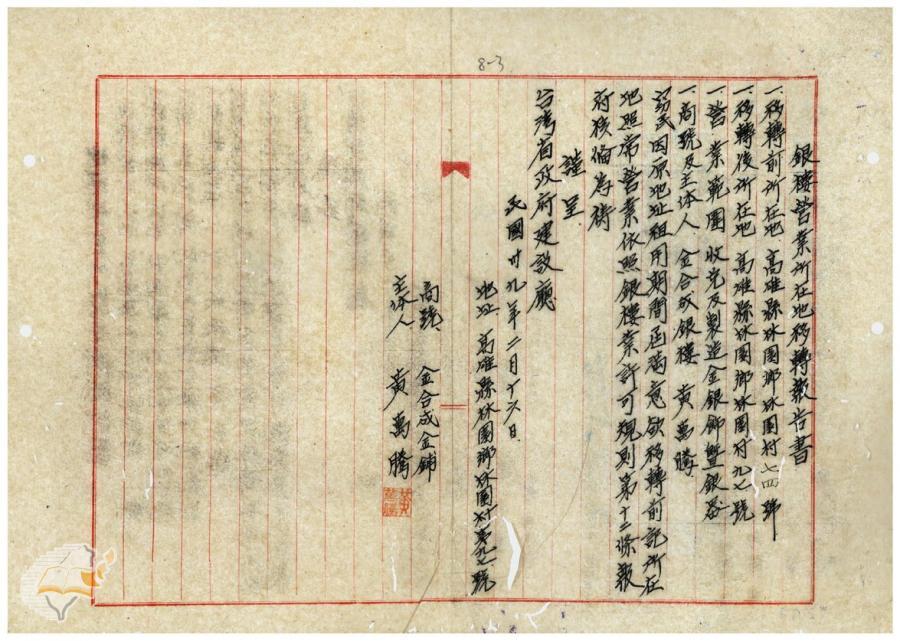 8-3
銀樓營業所在地移轉報告書
一、移轉前所在地 高雄縣林園鄉林園村七四號
一、移轉後所在地 高雄縣林園鄉林園村九七號
一、營業範圍 收兌及製造金銀飾暨銀器
一、商號及主体人 金合成銀樓 黃萬騰
竊民因原地址租用期間屆滿意欲移轉前記所在
地照常營業依照銀樓業許可規則第十二條報
府核備為禱
謹呈
台灣省政府建設廳
民國卅九年二月十六日
地址 高雄縣林園鄉林園村第九七號
商號 金合成金鋪
主体人 黃萬騰